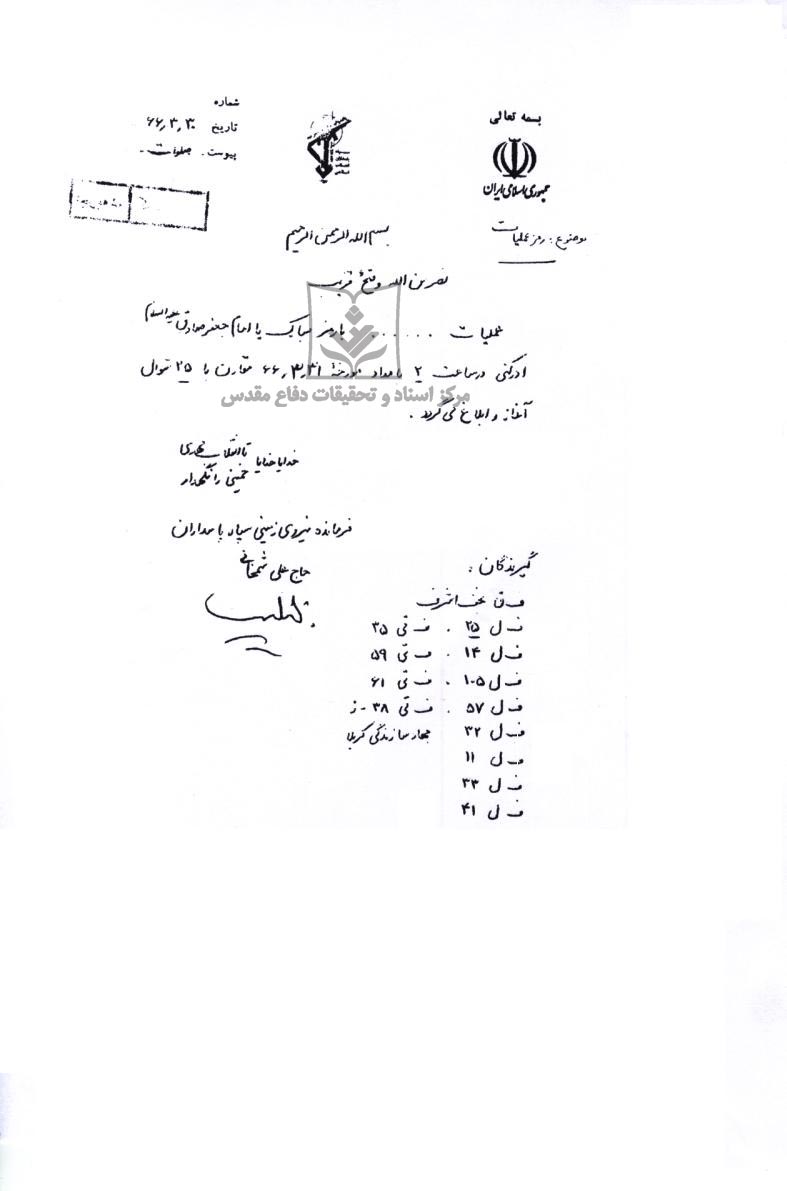 بسمه تعالی
جمهوری اسلامی ایران
شماره
تاریخ ۶۶٫۳٫۳۰
پیوست. صلوات.
موضوع: رمز عملیات
بسم الله الرحمن الرحیم
نصر من الله و فتح قریب
عملیات . . . . . . با رمز مبارک یا امام جعفر صادق علیه السلام
ادرکنی در ساعت ۲ بامداد مورخهٔ ۶۶٫۳٫۳۱ مقارن با ۲۵ شوال
مرکز اسناد و تحقیقات دفاع مقدس
آغاز و ابلاغ می گردد .
خدایا خدایا تا انقلاب مهدی
خمینی را نگهدار
فرمانده نیروی زمینی سپاه پاسداران
حاج علی شمخانی
گیرندگان :
ق نجف اشرف
ف ل ۲۵ . ف تی ۳۵
ف ل ۱۴ . ف تی ۵۹
ف ل ۱۰۵ . ف تی ۶۱
ف ل ۵۷ . ف تی ۳۸ - ز
ف ل ۳۲ جهاد سازندگی کربلا
ف ل ۱۱
ف ل ۳۳
ف ل ۴۱